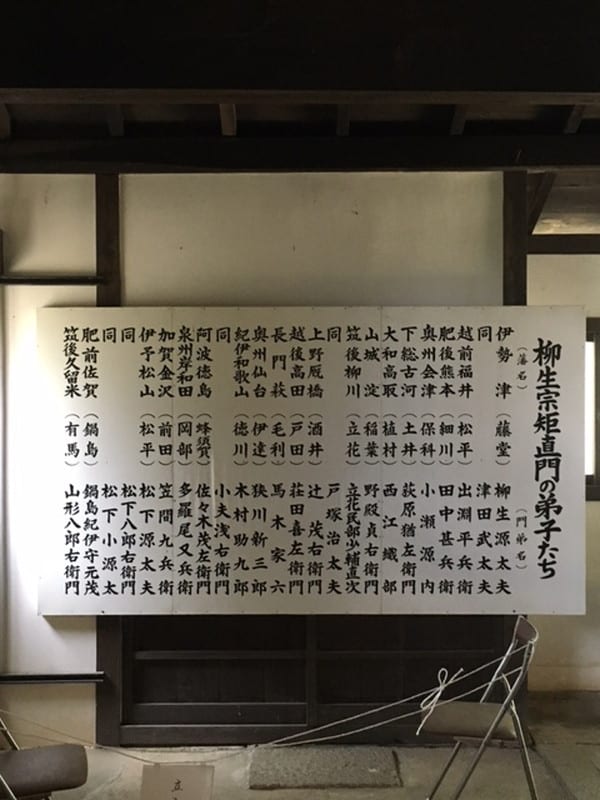 柳生宗矩直門の弟子たち
（藩名）（門弟名）
伊勢津（藤堂）柳生源太夫
同 津田武太夫
越前福井（松平）出淵平兵衛
肥後熊本（細川）田中甚兵衛
奥州会津（保科）小瀬源内
下総古河（土井）荻原猶左衛門
大和高取（植村）西江織部
山城淀（稲葉）野殿貞右衛門
筑後柳川（立花）立花民部少輔直次
同 戸塚治太夫
上野厩橋（酒井）辻茂右衛門
越後高田（戸田）荘田喜左衛門
長門萩（毛利）馬木家六
奥州仙台（伊達）狭川新三郎
紀伊和歌山（徳川）木村助九郎
同 小夫浅右衛門
阿波徳島（蜂須賀）佐々木茂左衛門
泉州岸和田（岡部）多羅尾又兵衛
加賀金沢（前田）笠間九兵衛
伊予松山（松平）松下源太夫
同 松下八郎右衛門
同 松下小源太
肥前佐賀（鍋島）鍋島紀伊守元茂
筑後久留米（有馬）山形八郎右衛門